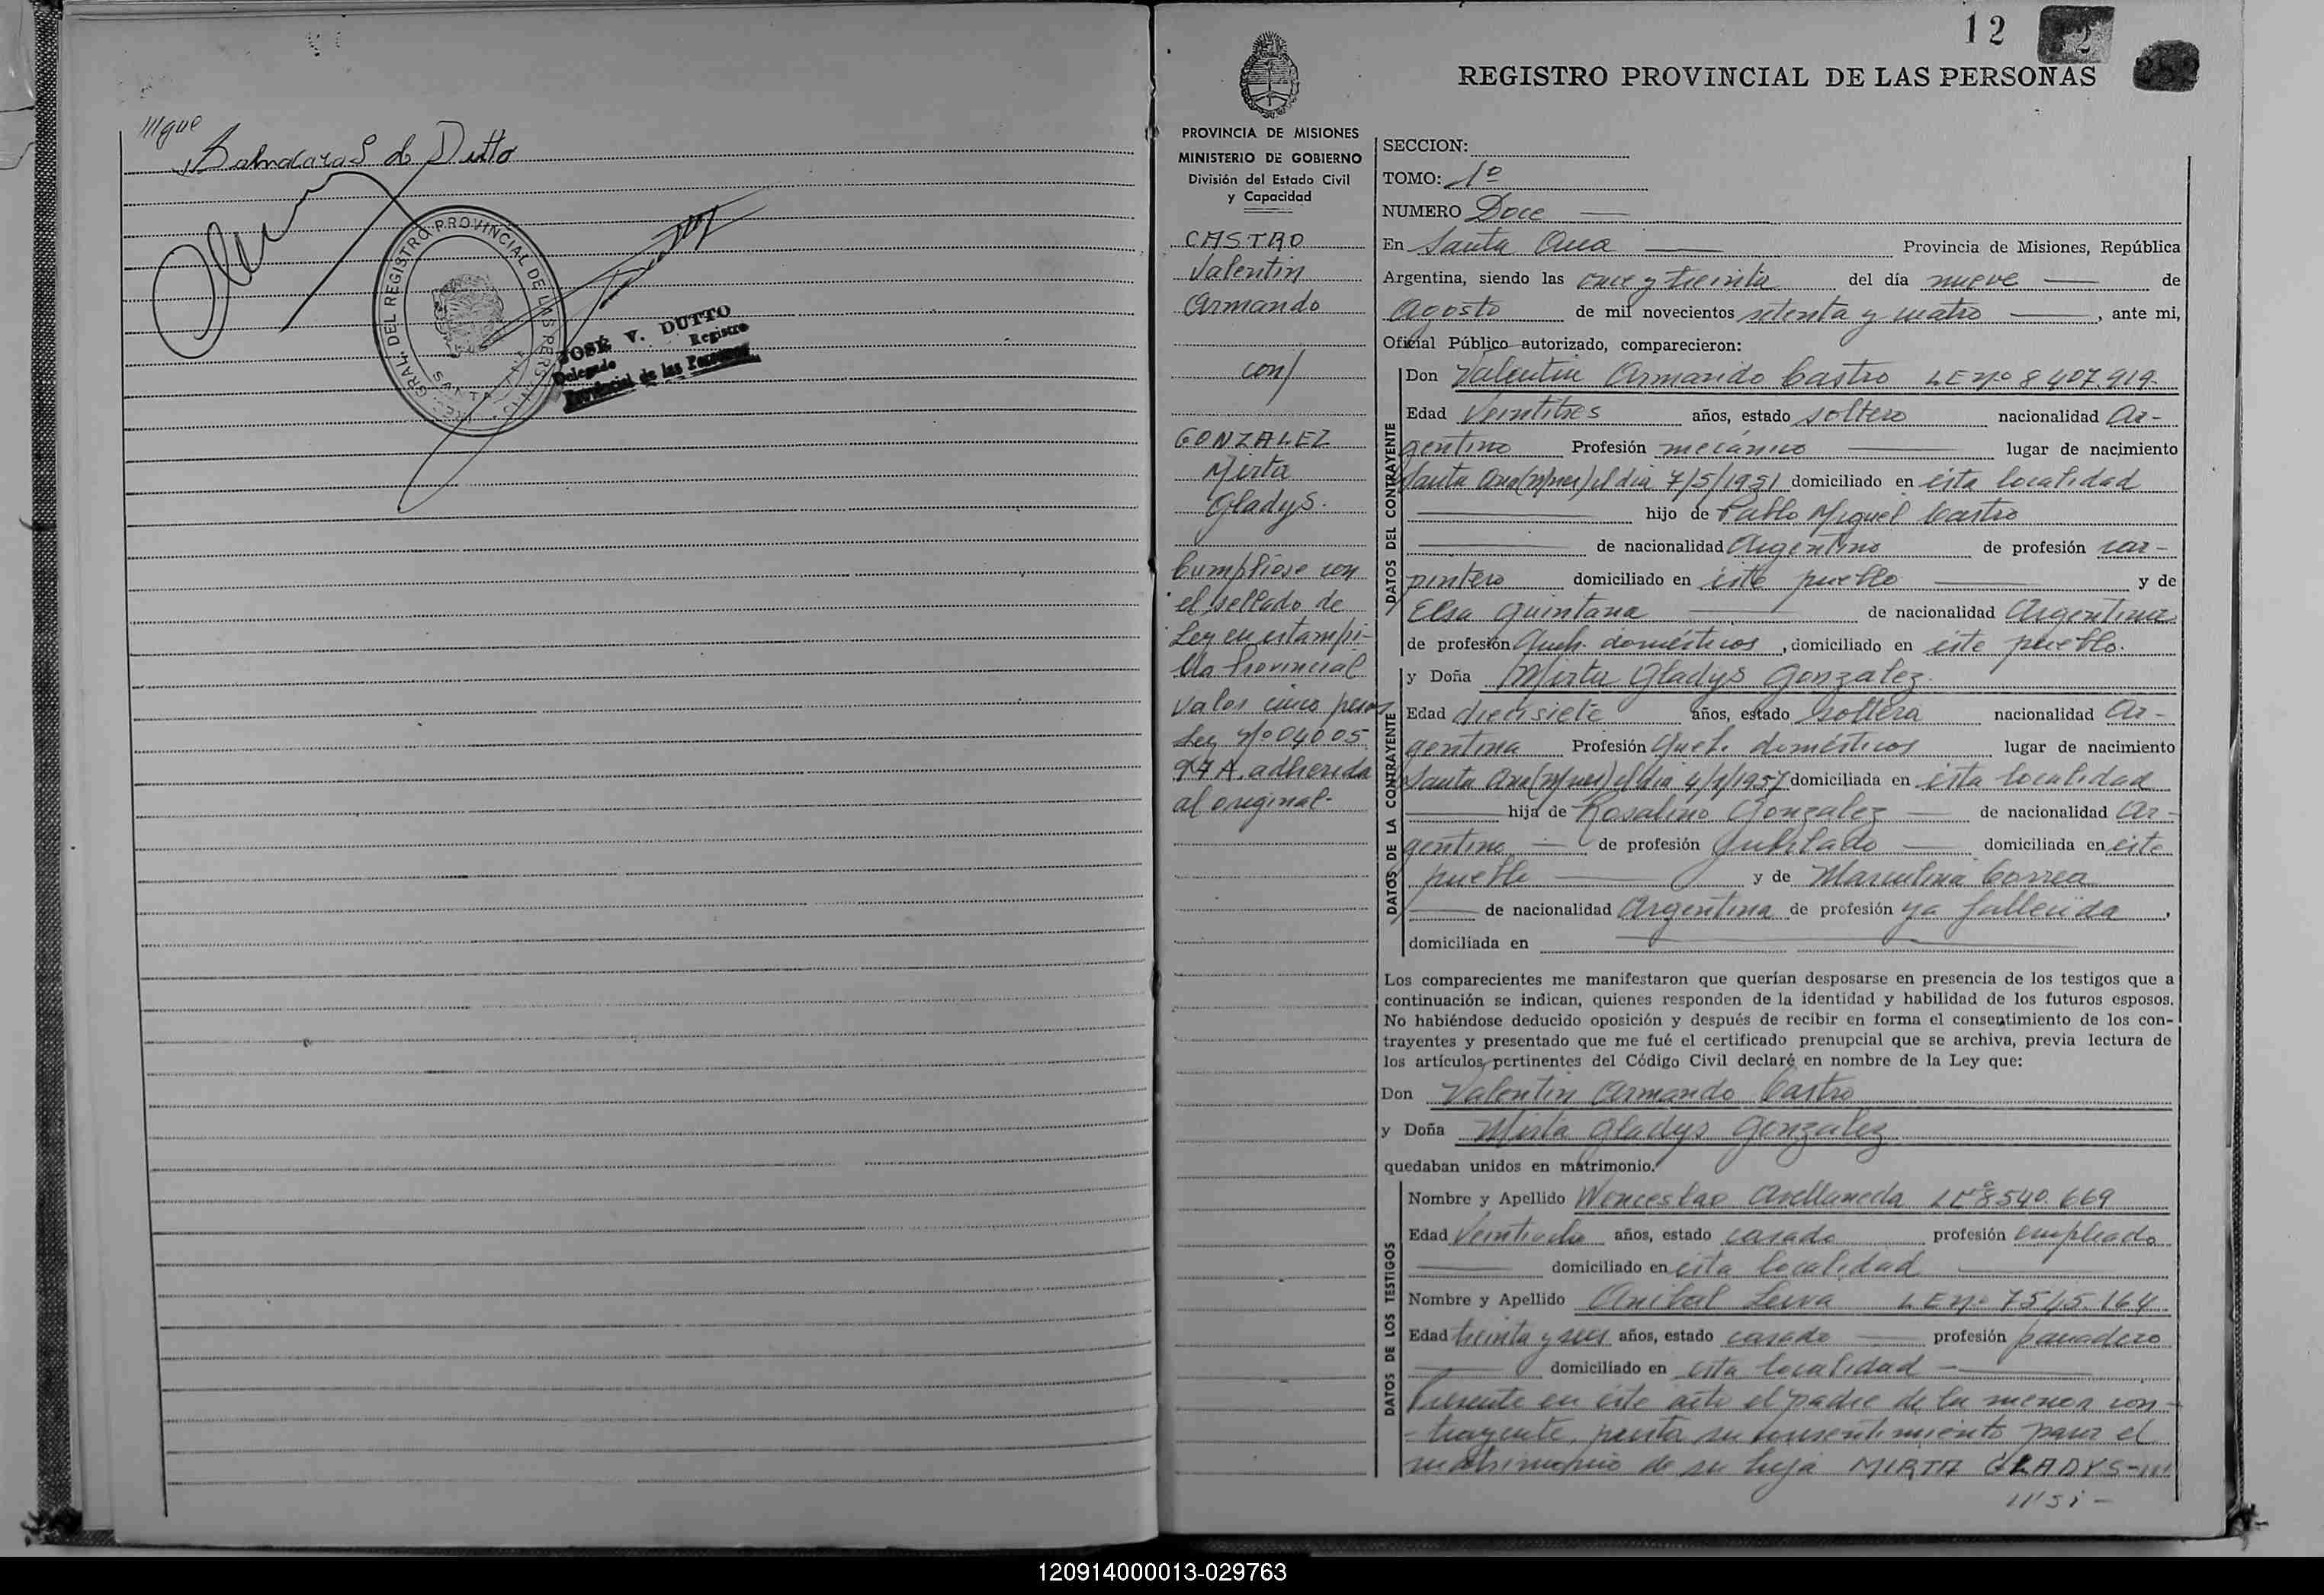 ///que
Balmacaras de Dutto
REG. GRAL. DEL REGISTRO PROVINCIAL DE LAS PERSONAS
SANTA ANA
JOSÉ V. DUTTO
Delegado Registro
Provincial de las Personas
12
2
REGISTRO PROVINCIAL DE LAS PERSONAS
PROVINCIA DE MISIONES
MINISTERIO DE GOBIERNO
División del Estado Civil
y Capacidad
CASTRO
Valentin
Armando
con/
GONZALEZ
Mirta
Gladys.
Cumpliose con
el sellado de
Ley en estampi-
lla Provincial
valor cinco pesos
Ley Nº 04005
97 A. adherida
al original-
SECCION:
TOMO: 1º
NUMERO Doce
En Santa Ana Provincia de Misiones, República
Argentina, siendo las once y treinta del día nueve de
Agosto de mil novecientos setenta y cuatro, ante mi,
Oficial Público autorizado, comparecieron:
DATOS DEL CONTRAYENTE
Don Valentin Armando Castro LE Nº 8 407.919-
Edad Veintitres años, estado soltero nacionalidad Ar-
gentino Profesión mecánico lugar de nacimiento
Santa Ana (Mnes) el dia 7/5/1951 domiciliado en ésta localidad
hijo de Pablo Miguel Castro
de nacionalidad Argentino de profesión car-
pintero domiciliado en éste pueblo y de
Elsa Quintana de nacionalidad Argentina
de profesión Queh. domésticos, domiciliado en éste pueblo.
DATOS DE LA CONTRAYENTE
y Doña Mirta Gladys Gonzalez.
Edad diecisiete años, estado soltera nacionalidad Ar-
gentina Profesión Queh. domésticos lugar de nacimiento
Santa Ana (Mnes) el dia 4/1/1957 domiciliada en ésta localidad
hija de Rosalino Gonzalez de nacionalidad Ar-
gentino de profesión Jubilado domiciliada en éste
pueblo y de Marcelina Correa
de nacionalidad Argentina de profesión ya fallecida,
domiciliada en
Los comparecientes me manifestaron que querían desposarse en presencia de los testigos que a
continuación se indican, quienes responden de la identidad y habilidad de los futuros esposos.
No habiéndose deducido oposición y después de recibir en forma el consentimiento de los con-
trayentes y presentado que me fué el certificado prenupcial que se archiva, previa lectura de
los artículos pertinentes del Código Civil declaré en nombre de la Ley que:
Don Valentin Armando Castro
y Doña Mirta Gladys Gonzalez
quedaban unidos en matrimonio.
DATOS DE LOS TESTIGOS
Nombre y Apellido Wenceslao Avellaneda LEº 8540.669
Edad Veintiocho años, estado casado profesión empleado
domiciliado en ésta localidad
Nombre y Apellido Anibal Leiva LE Nº 7545.164
Edad treinta y seis años, estado casado profesión panadero
domiciliado en ésta localidad
Presente en éste acto el padre de la menor con-
-trayente, presta su consentimiento para el
matrimonio de su hija MIRTA GLADYS-///
///si-
120914000013-029763